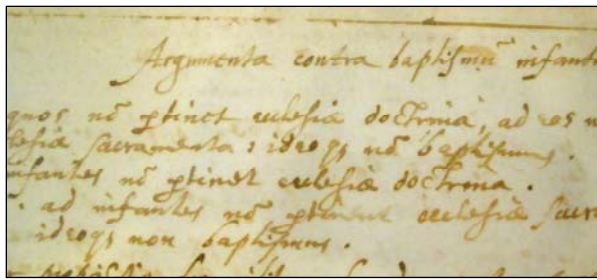 Argumenta contra baptismū infant
quos nō ptinet ecclesiæ doctrina, ad eos n
lesiæ sacramenta, ideoqꝫ nō baptismus.
nfantes nō ptinet ecclesiæ doctrina.
ad infantes nō ptinent ecclesiæ sacr
ideoqꝫ non baptismus.